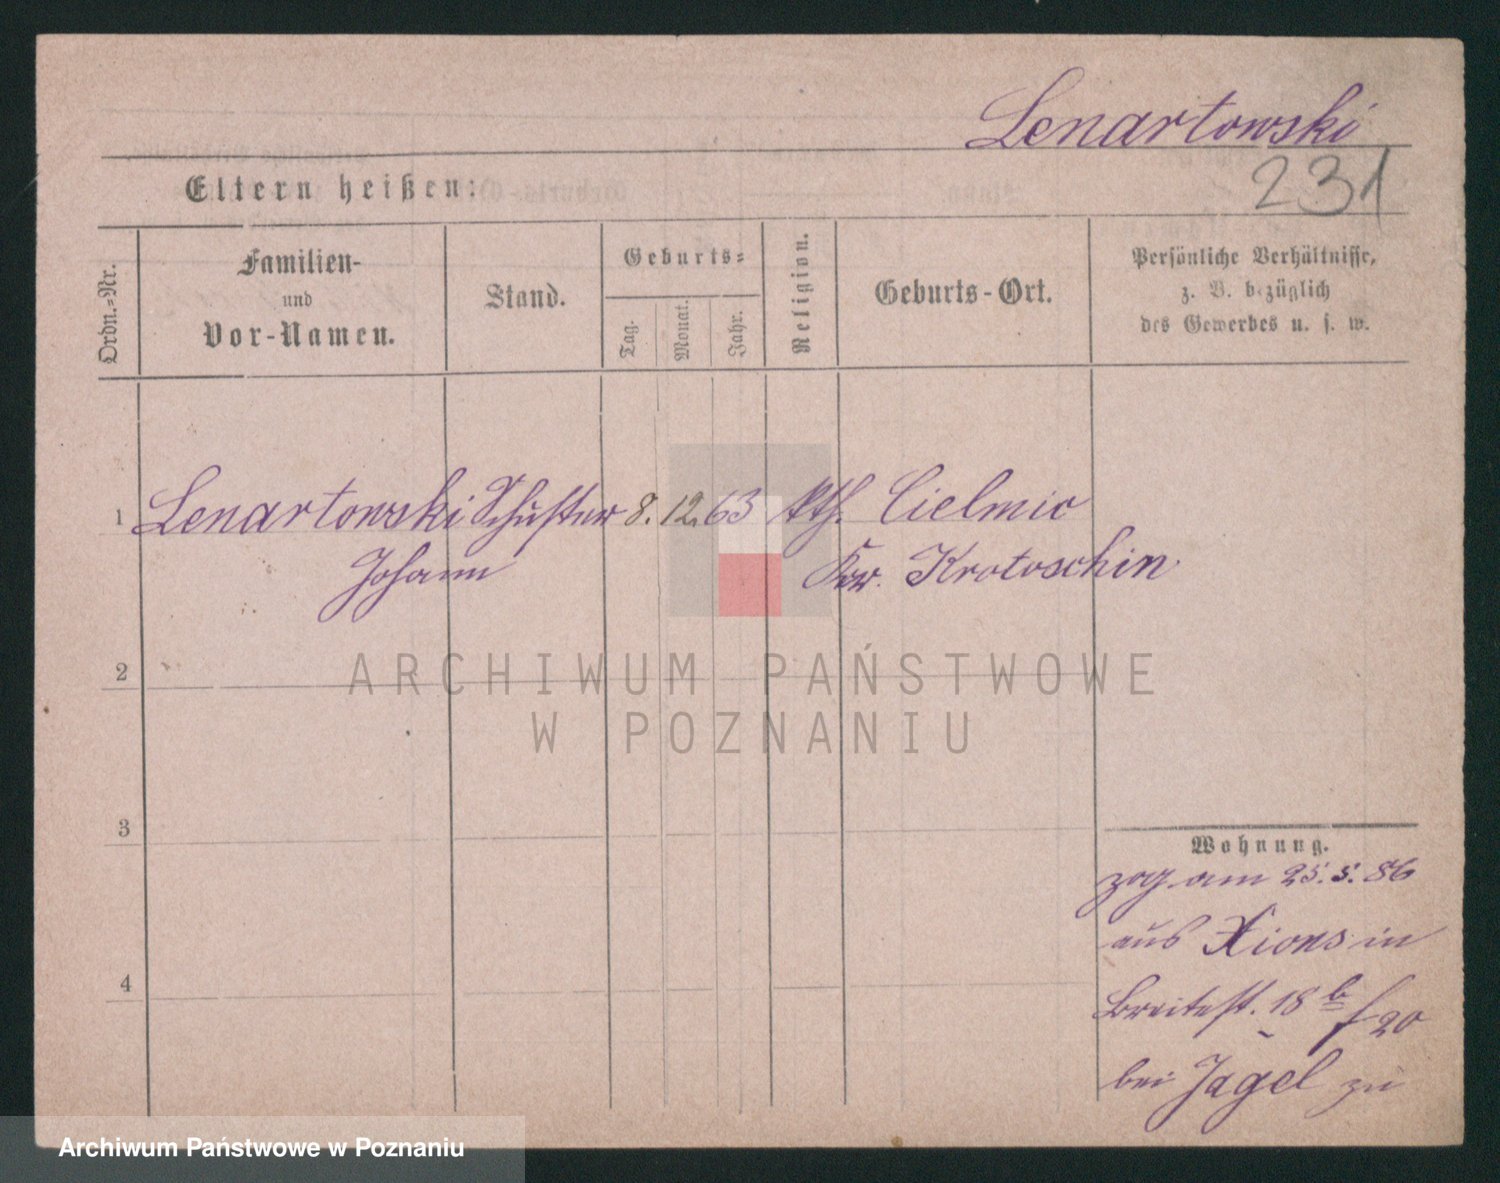 Lenartowski
231
Eltern heißen:
Ordn.-Nr.
Familien-
und
Vor-Namen.
Stand.
Geburts-
Tag.
Monat.
Jahr.
Religion.
Geburts-Ort.
Persönliche Verhältnisse,
z. B. bezüglich
des Gewerbes u. s. w.
1 Lenartowski Schuster 8. 12. 63 kth. Cielmic
Johann Kr. Krotoschin
2
3
4
Wohnung.
zog am 25. 5. 86
aus Xions in
Breitest. 18 b f 20
bei Jagel zu
ARCHIWUM PAŃSTWOWE
W POZNANIU
Archiwum Państwowe w Poznaniu